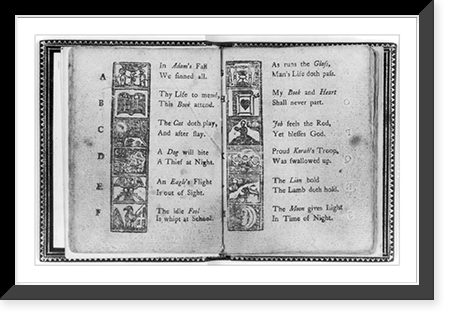 A
In Adam's Fall
We sinned all.
B
Thy Life to mend,
This Book attend.
C
The Cat doth play,
And after slay.
D
A Dog will bite
A Thief at Night.
E
An Eagle's Flight
Is out of Sight.
F
The idle Fool
Is whipt at School.
As runs the Glass,
Man's Life doth pass.
My Book and Heart
Shall never part.
Job feels the Rod,
Yet blesses God.
Proud Korah's Troop,
Was swallowed up.
The Lion bold
The Lamb doth hold.
The Moon gives Light
In Time of Night.